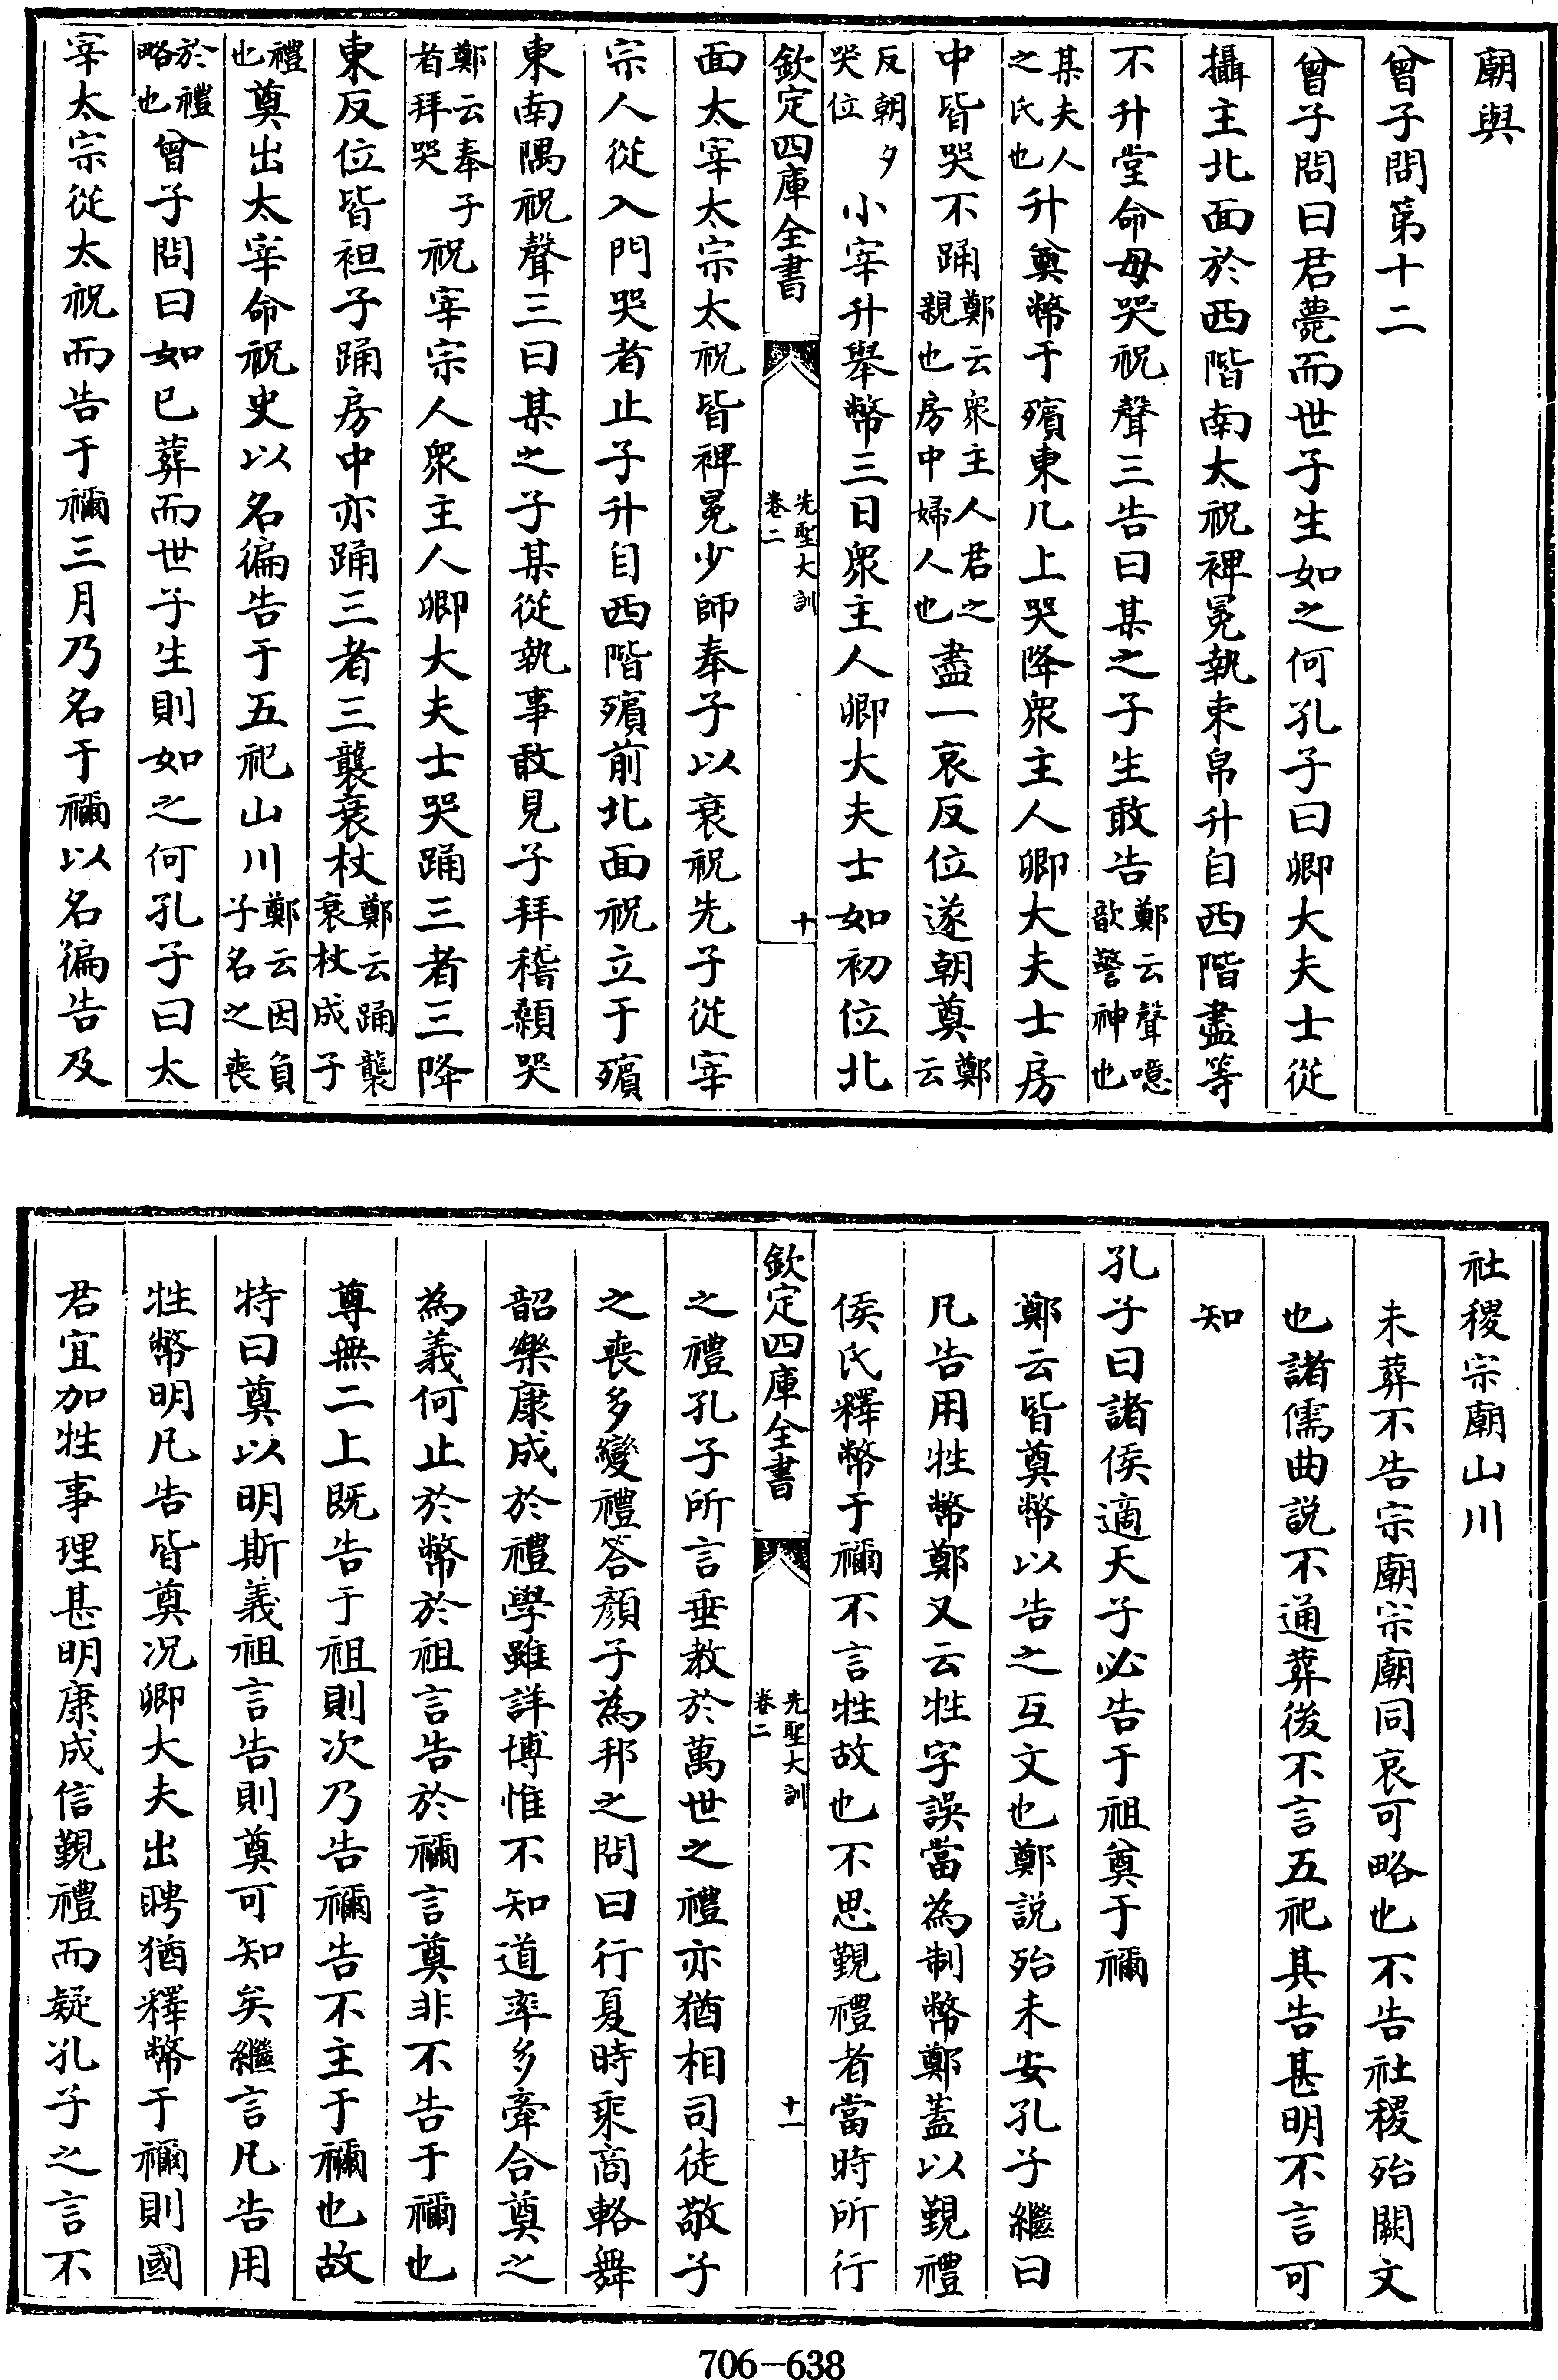 廟與
曾子問第十二
曾子問曰君薨而世子生如之何孔子曰卿大夫士從
攝主北面於西階南大祝裨冕執束帛升自西階盡等
不升堂命毋哭祝聲三告曰某之子生敢告鄭云聲噫歆警神也
某夫人之氏也升奠幣于殯東几上哭降衆主人卿大夫士房
中皆哭不踊鄭云衆主人君之親也房中婦人也盡一哀反位遂朝奠鄭云
反朝夕哭位小宰升舉幣三日衆主人卿大夫士如初位北
欽定四庫全書 先聖大訓 卷二 十
面太宰太宗太祝皆裨冕少師奉子以衰祝先子從宰
宗人從入門哭者止子升自西階殯前北面祝立于殯
東南隅祝聲三曰某之子某從執事敢見子拜稽顙哭
鄭云奉子者拜哭祝宰宗人衆主人卿大夫士哭踊三者三降
東反位皆袒子踊房中亦踊三者三襲衰杖鄭云踊襲衰杖成子
禮也奠出太宰命祝史以名徧告于五祀山川鄭云因負子名之喪
於禮略也曾子問曰如已葬而世子生則如之何孔子曰太
宰太宗從太祝而告于禰三月乃名于禰以名徧告及
社稷宗廟山川
未葬不告宗廟宗廟同哀可略也不告社稷殆闕文
也諸儒曲説不通葬後不言五祀其告甚明不言可
知
孔子曰諸侯適天子必告于祖奠于禰
鄭云皆奠幣以告之互文也鄭説殆未安孔子繼曰
凡告用牲幣鄭又云牲字誤當為制幣鄭蓋以覲禮
侯氏釋幣于禰不言牲故也不思覲禮者當時所行
欽定四庫全書 先聖大訓 卷二 十一
之禮孔子所言垂教於萬世之禮亦猶相司徒敬子
之喪多變禮答顔子為邦之問曰行夏時乘商輅舞
韶樂康成於禮學雖詳博惟不知道率多牽合奠之
為義何止於幣於祖言告於禰言奠非不告于禰也
尊無二上既告于祖則次乃告禰告不主于禰也故
特曰奠以明斯義祖言告則奠可知矣繼言凡告用
牲幣明凡告皆奠况卿大夫出聘猶釋幣于禰則國
君宜加牲事理甚明康成信覲禮而疑孔子之言不
706—638